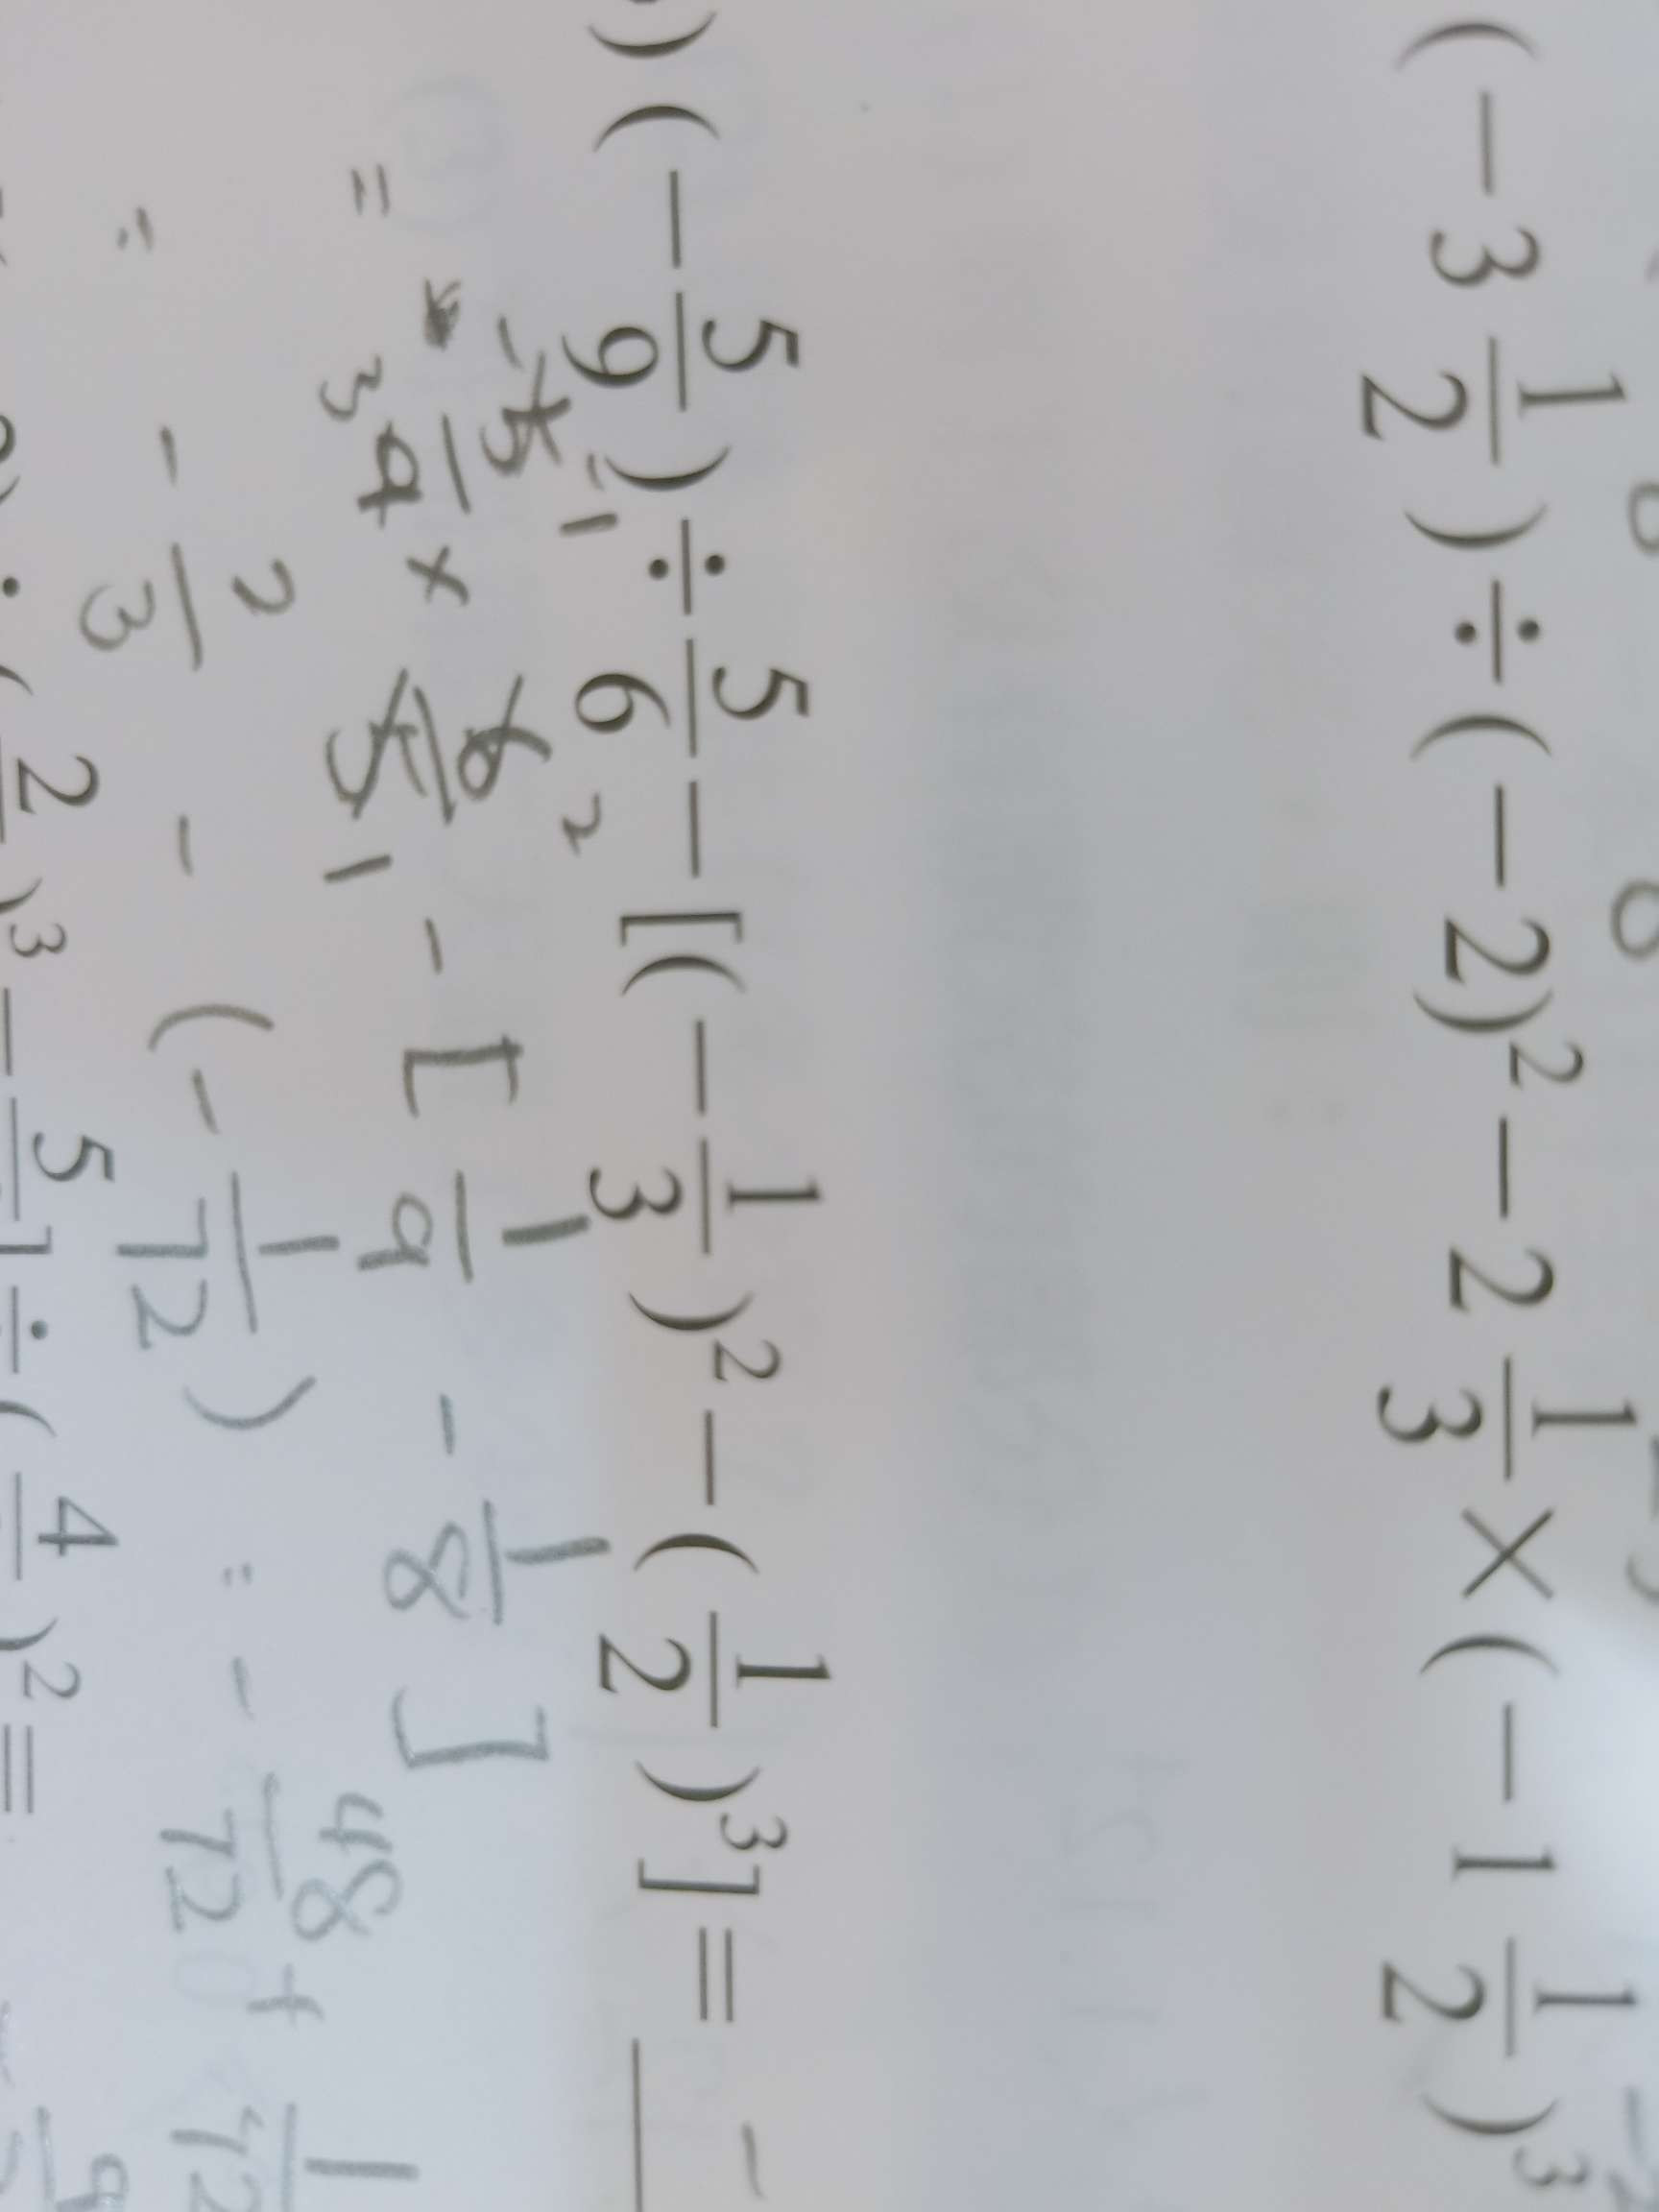 (-3 1/2) ÷ (-2))² - 2 1/3 × (-1 1/2)³
) (-5/9) ÷ 5/6 - [(-1/3)² - (1/2)³] =
= -5/9 × 6/5 - [1/9 - 1/8]
-1 3 2 1
= -2/3 - (-1/72) = -48/72 + 1/72
2 )³ - 5 ] ÷ ( 4 )² =